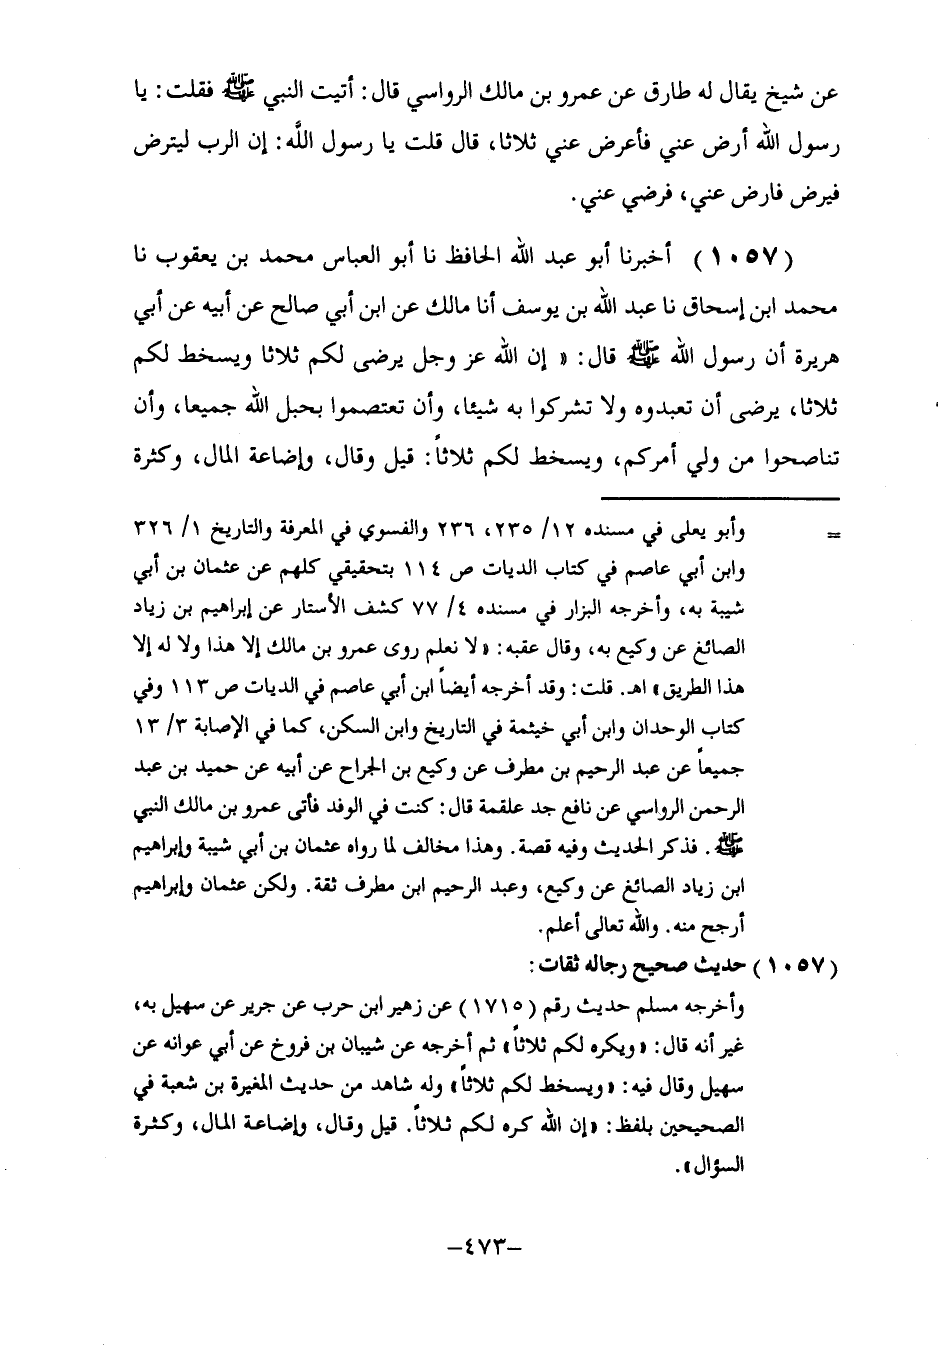 عن شيخ يقال له طارق عن عمرو بن مالك الرواسي قال: أتيت النبي ﷺ فقلت: يا
رسول الله أرض عني فأعرض عني ثلاثا، قال قلت يا رسول اللَّه: إن الرب ليترض
فيرض فارض عني، فرضي عني.
(١٠٥٧) أخبرنا أبو عبد الله الحافظ نا أبو العباس محمد بن يعقوب نا
محمد ابن إسحاق نا عبد الله بن يوسف أنا مالك عن ابن أبي صالح عن أبيه عن أبي
هريرة أن رسول الله ﷺ قال: « إن الله عز وجل يرضى لكم ثلاثا ويسخط لكم
ثلاثا، يرضى أن تعبدوه ولا تشركوا به شيئا، وأن تعتصموا بحبل الله جميعا، وأن
تناصحوا من ولي أمركم، ويسخط لكم ثلاثاً: قيل وقال، وإضاعة المال، وكثرة
= وأبو يعلى في مسنده ١٢/ ٢٣٥، ٢٣٦ والفسوي في المعرفة والتاريخ ١/ ٣٢٦
وابن أبي عاصم في كتاب الديات ص ١١٤ بتحقيقي كلهم عن عثمان بن أبي
شيبة به، وأخرجه البزار في مسنده ٤/ ٧٧ كشف الأستار عن إبراهيم بن زياد
الصائغ عن وكيع به، وقال عقبه: «لا نعلم روى عمرو بن مالك إلا هذا ولا له إلا
هذا الطريق» اهـ. قلت: وقد أخرجه أيضاً ابن أبي عاصم في الديات ص ١١٣ وفي
كتاب الوحدان وابن أبي خيثمة في التاريخ وابن السكن، كما في الإصابة ٣/ ١٣
جميعاً عن عبد الرحيم بن مطرف عن وكيع بن الجراح عن أبيه عن حميد بن عبد
الرحمن الرواسي عن نافع جد علقمة قال: كنت في الوفد فأتى عمرو بن مالك النبي
ﷺ. فذكر الحديث وفيه قصة. وهذا مخالف لما رواه عثمان بن أبي شيبة وإبراهيم
ابن زياد الصائغ عن وكيع، وعبد الرحيم ابن مطرف ثقة. ولكن عثمان وإبراهيم
أرجح منه. والله تعالى أعلم.
(١٠٥٧) حديث صحيح رجاله ثقات:
وأخرجه مسلم حديث رقم (١٧١٥) عن زهير ابن حرب عن جرير عن سهيل به،
غير أنه قال: «ويكره لكم ثلاثاً» ثم أخرجه عن شيبان بن فروخ عن أبي عوانه عن
سهيل وقال فيه: «ويسخط لكم ثلاثاً» وله شاهد من حديث المغيرة بن شعبة في
الصحيحين بلفظ: «إن الله كره لكم ثلاثاً. قيل وقال، وإضاعة المال، وكثرة
السؤال».
-٤٧٣-